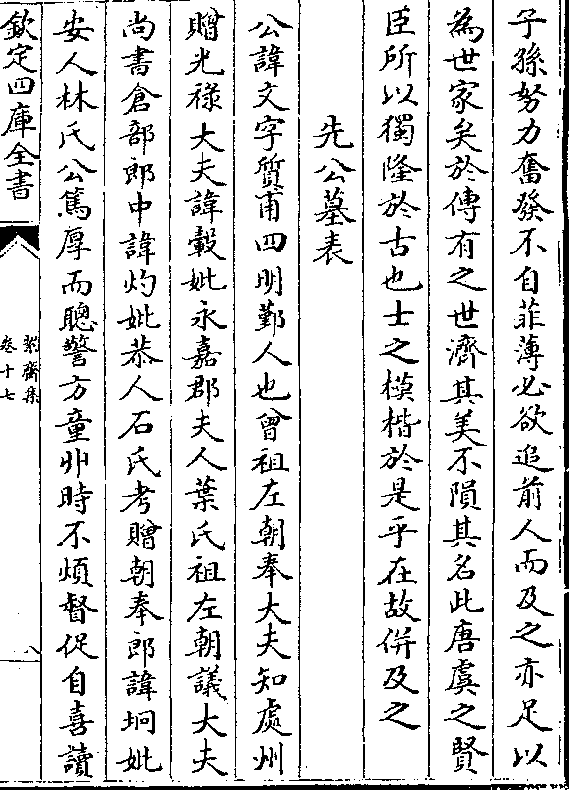 子孫努力奮發不自菲薄必欲追前人而及之亦足以
為世家矣於傳有之世濟其美不隕其名此唐虞之賢
臣所以獨隆於古也士之模楷於是乎在故併及之
先公墓表
公諱文字質甫四明鄞人也曾祖左朝奉大夫知處州
贈光祿大夫諱轂妣永嘉郡夫人葉氏祖左朝議大夫
尚書倉部郎中諱灼妣恭人石氏考贈朝奉郎諱坰妣
安人林氏公篤厚而聰警方童丱時不煩督促自喜讀
欽定四庫全書
絜齋集
卷十七
八